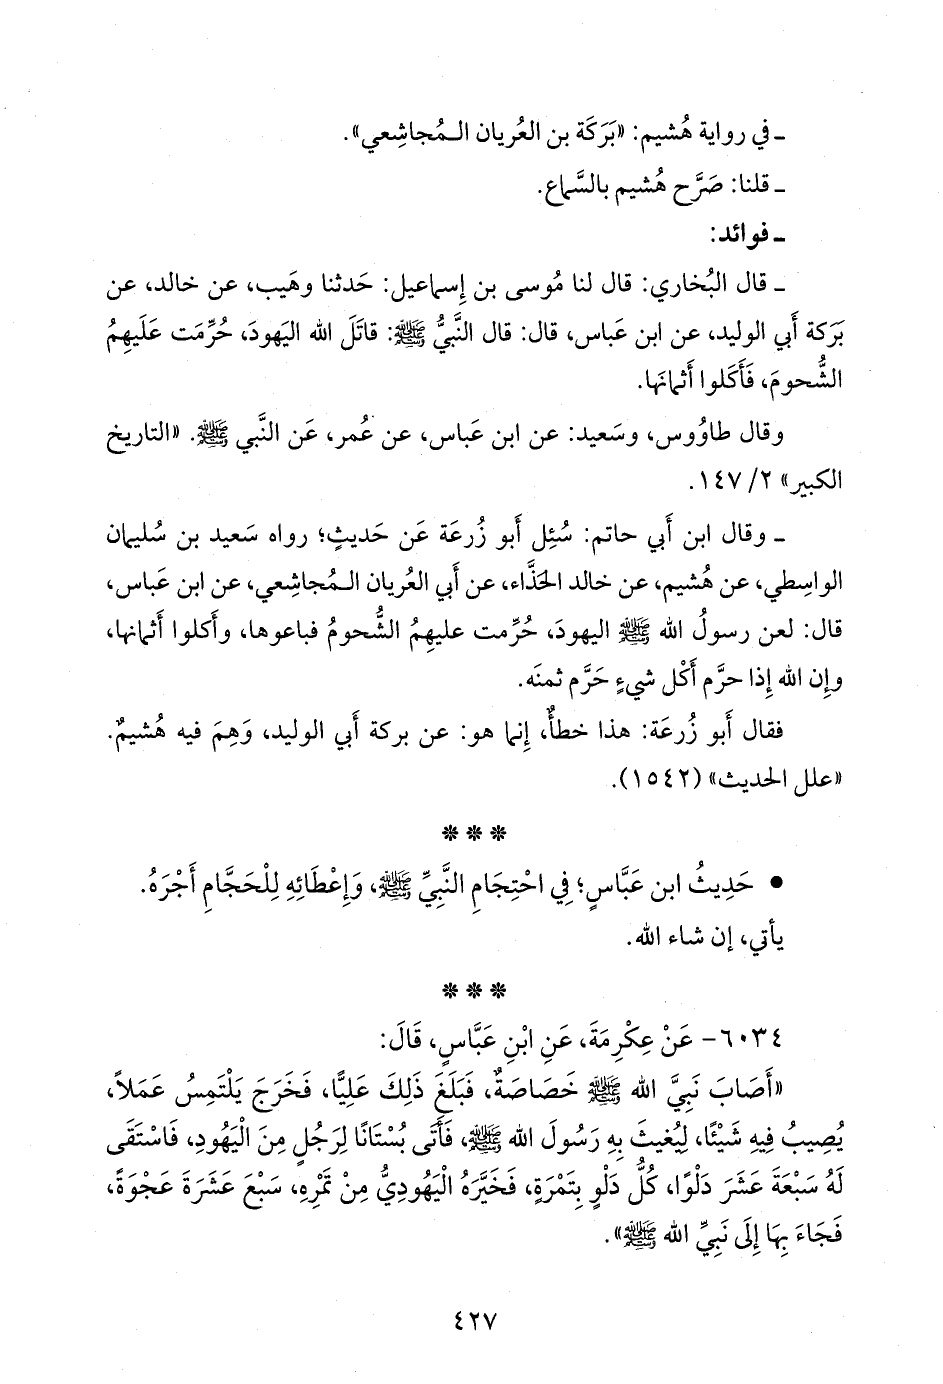 ـ في رواية هُشيم: «بَرَكَة بن العُريان الـمُجاشِعي».
ـ قلنا: صَرَّح هُشيم بالسَّماع.
ـ فوائد:
ـ قال البُخاري: قال لنا مُوسى بن إسماعيل: حَدثنا وهَيب، عن خالد، عن
بَرَكة أَبي الوليد، عن ابن عَباس، قال: قال النَّبيُّ ﷺ: قاتَلَ الله اليَهودَ، حُرِّمَت عَلَيهِمُ
الشُّحومَ، فَأَكَلوا أَثمانَها.
وقال طاوُوس، وسَعيد: عن ابن عَباس، عن عُمر، عَن النَّبي ﷺ. «التاريخ
الكبير» ٢/ ١٤٧.
ـ وقال ابن أَبي حاتم: سُئِل أَبو زُرعَة عَن حَديثٍ؛ رواه سَعيد بن سُليمان
الواسِطي، عن هُشيم، عن خالد الحَذَّاء، عن أَبي العُريان الـمُجاشِعي، عن ابن عَباس،
قال: لعن رسولُ الله ﷺ اليهودَ، حُرِّمت عليهِمُ الشُّحومُ فباعوها، وأكلوا أَثمانها،
وإِن الله إِذا حرَّم أَكْل شيءٍ حَرَّم ثمنَه.
فقال أَبو زُرعَة: هذا خطأٌ، إِنما هو: عن بركة أَبي الوليد، وَهِمَ فيه هُشيمٌ.
«علل الحديث» (١٥٤٢).
* * *
• حَدِيثُ ابن عَبَّاسٍ؛ فِي احْتِجَامِ النَّبِيِّ ﷺ، وَإِعْطَائِهِ لِلْحَجَّامِ أَجْرَهُ.
يأتي، إن شاء الله.
* * *
٦٠٣٤- عَنْ عِكْرِمَةَ، عَنِ ابْنِ عَبَّاسٍ، قَالَ:
«أَصَابَ نَبِيَّ الله ﷺ خَصَاصَةٌ، فَبَلَغَ ذَلِكَ عَلِيًّا، فَخَرَجَ يَلْتَمِسُ عَمَلاً،
يُصِيبُ فِيهِ شَيْئًا، لِيُغِيثَ بِهِ رَسُولَ الله ﷺ، فَأَتَى بُسْتَانًا لِرَجُلٍ مِنَ الْيَهُودِ، فَاسْتَقَى
لَهُ سَبْعَةَ عَشَرَ دَلْوًا، كُلُّ دَلْوٍ بِتَمْرَةٍ، فَخَيَّرَهُ الْيَهُودِيُّ مِنْ تَمْرِهِ، سَبْعَ عَشَرَةَ عَجْوَةً،
فَجَاءَ بِهَا إِلَى نَبِيِّ الله ﷺ».
٤٢٧